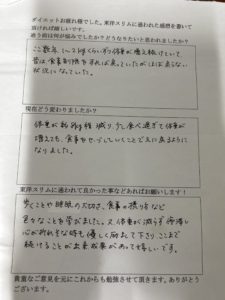 ダイエットお疲れ様でした。東洋スリムに通われた感想を書いて
頂ければ嬉しいです。
通う前は何が悩みでしたか？どうなりたいと思われましたか？
ここ数年、1〜2kgくらいずつ体重が増え続けていて
昔は食事制限をすれば戻っていたがほぼ戻らない
状況になっていた。
現在どう変わりましたか？
体重が約8kg程減り、少し食べ過ぎて体重が
増えても、食事をせいていくことで元に戻るように
なりました。
東洋スリムに通われて良かった事などあればお願いします！
歩くことや睡眠の大切さ、食事の摂り方など
色々なことを学びました。又体重が減らず停滞し
心が折れそうな時も優しく励まして下さりここまで
続けることが出来成果があって嬉しいです。
貴重なご意見を元にこれからも勉強させて頂きます。ありがとう
ございます。